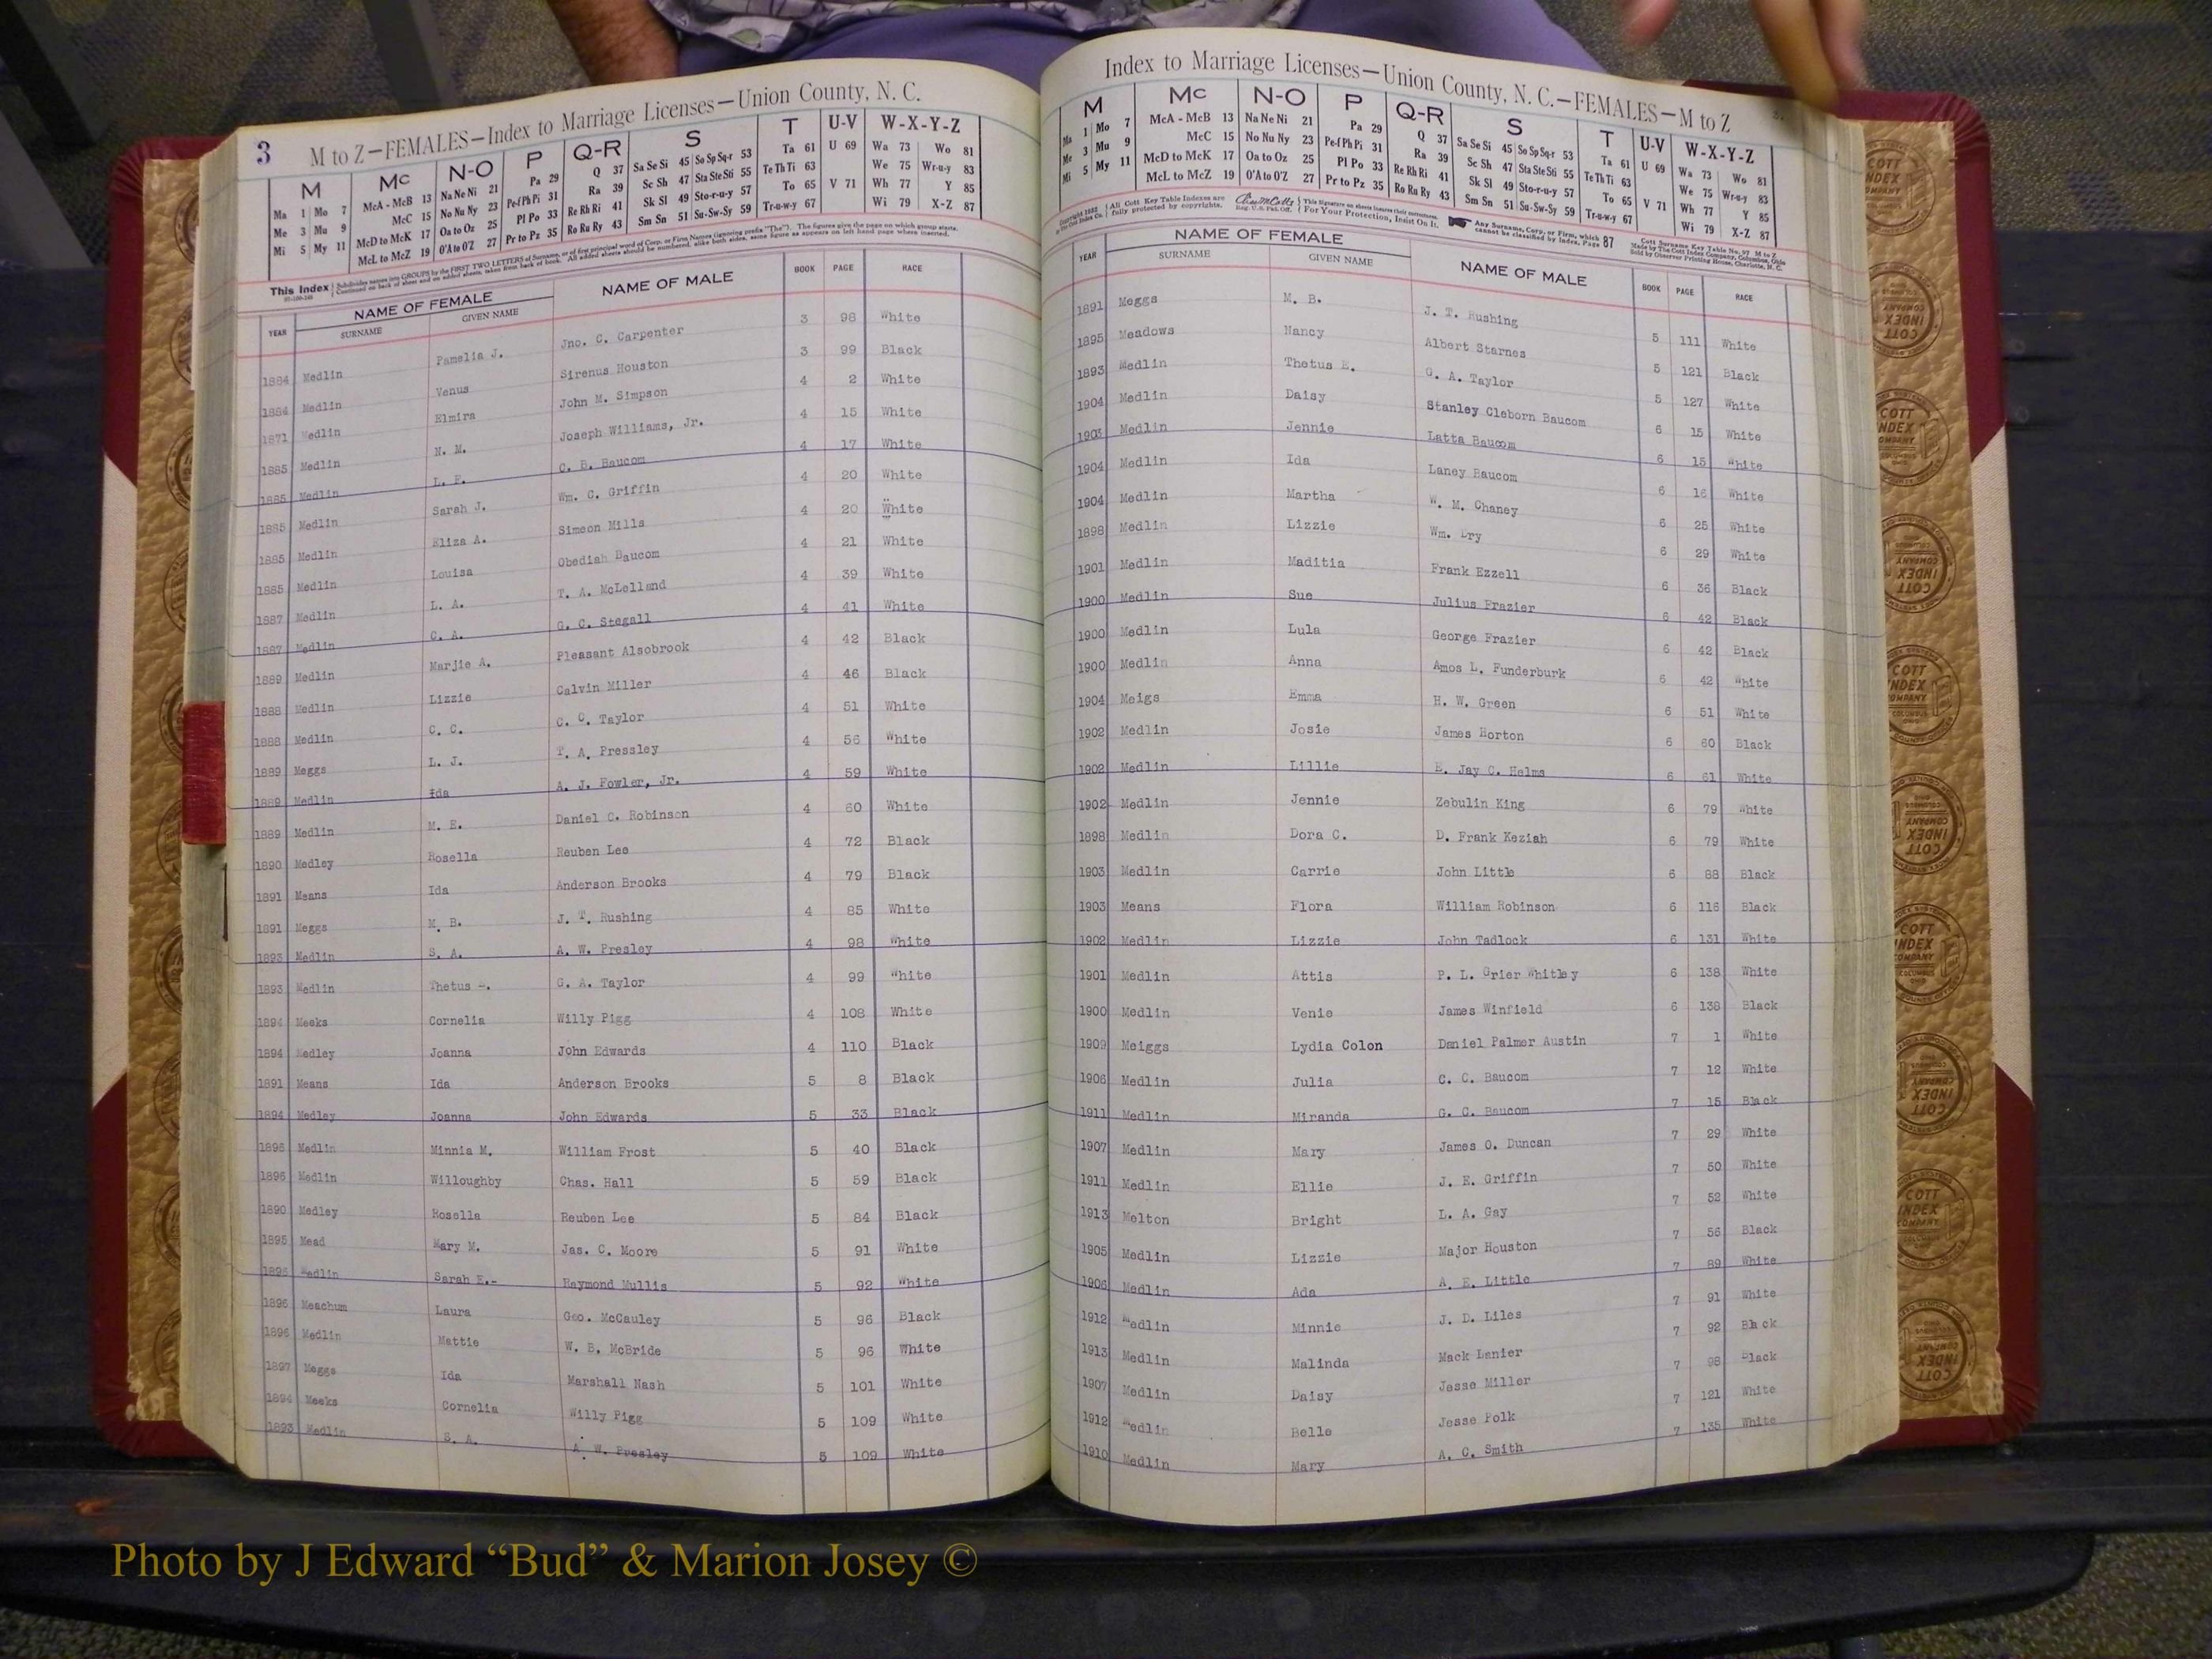 3 M to Z—FEMALES—Index to Marriage Licenses—Union County, N. C.
M Mc N-O P Q-R S T U-V W-X-Y-Z
Ma 1 Mo 7 McA - McB 13 Na Ne Ni 21 Pa 29 Q 37 Sa Se Si 45 So Sp Sq-r 53 Ta 61 U 69 Wa 73 Wo 81
Me 3 Mu 9 McC 15 No Nu Ny 23 Pe-f Ph Pi 31 Ra 39 Sc Sh 47 Sta Ste Sti 55 Te Th Ti 63 We 75 Wr-u-y 83
Mi 5 My 11 McD to McK 17 Oa to Oz 25 Pl Po 33 Re Rh Ri 41 Sk Sl 49 Sto-r-u-y 57 To 65 V 71 Wh 77 Y 85
McL to McZ 19 O'A to O'Z 27 Pr to Pz 35 Ro Ru Ry 43 Sm Sn 51 Su-Sw-Sy 59 Tr-u-w-y 67 Wi 79 X-Z 87
This Index Subdivides names into GROUPS by the FIRST TWO LETTERS of Surname, or of first principal word of Corp. or Firm Names (ignoring prefix "The"). The figures give the page on which group starts.
Continued on back of sheet and on added sheets, taken from back of book. All added sheets should be numbered, alike both sides, same figure as appears on left hand page where inserted.
YEAR NAME OF FEMALE NAME OF MALE BOOK PAGE RACE
SURNAME GIVEN NAME
1884 Medlin Pamelia J. Jno. C. Carpenter 3 98 White
1884 Medlin Venus Sirenus Houston 3 99 Black
1871 Medlin Elmira John M. Simpson 4 2 White
1885 Medlin N. M. Joseph Williams, Jr. 4 15 White
1885 Medlin L. E. C. B. Baucom 4 17 White
1885 Medlin Sarah J. Wm. C. Griffin 4 20 White
1885 Medlin Eliza A. Simeon Mills 4 20 White
1885 Medlin Louisa Obediah Baucom 4 21 White
1887 Medlin L. A. T. A. McLelland 4 39 White
1887 Medlin C. A. G. C. Stegall 4 41 White
1889 Medlin Marjie A. Pleasant Alsobrook 4 42 Black
1888 Medlin Lizzie Calvin Miller 4 46 Black
1888 Medlin C. C. C. C. Taylor 4 51 White
1889 Meggs L. J. T. A. Pressley 4 56 White
1889 Medlin Ida A. J. Fowler, Jr. 4 59 White
1889 Medlin M. E. Daniel C. Robinson 4 60 White
1890 Medley Rosella Reuben Lee 4 72 Black
1891 Means Ida Anderson Brooks 4 79 Black
1891 Meggs M. B. J. T. Rushing 4 85 White
1893 Medlin S. A. A. W. Presley 4 98 White
1893 Medlin Thetus G. A. Taylor 4 99 White
1894 Meeks Cornelia Willy Pigg 4 108 White
1894 Medley Joanna John Edwards 4 110 Black
1891 Means Ida Anderson Brooks 5 8 Black
1894 Medley Joanna John Edwards 5 33 Black
1896 Medlin Minnia M. William Frost 5 40 Black
1896 Medlin Willoughby Chas. Hall 5 59 Black
1890 Medley Rosella Reuben Lee 5 84 Black
1895 Mead Mary M. Jas. C. Moore 5 91 White
1895 Medlin Sarah E.- Raymond Mullis 5 92 White
1896 Meachum Laura Geo. McCauley 5 96 Black
1896 Medlin Mattie W. B. McBride 5 96 White
1897 Meggs Ida Marshall Nash 5 101 White
1894 Meeks Cornelia Willy Pigg 5 109 White
1893 Medlin S. A. A. W. Presley 5 109 White
Index to Marriage Licenses—Union County, N. C.—FEMALES—M to Z
M Mc N-O P Q-R S T U-V W-X-Y-Z
Ma 1 Mo 7 McA - McB 13 Na Ne Ni 21 Pa 29 Q 37 Sa Se Si 45 So Sp Sq-r 53 Ta 61 U 69 Wa 73 Wo 81
Me 3 Mu 9 McC 15 No Nu Ny 23 Pe-f Ph Pi 31 Ra 39 Sc Sh 47 Sta Ste Sti 55 Te Th Ti 63 We 75 Wr-u-y 83
Mi 5 My 11 McD to McK 17 Oa to Oz 25 Pl Po 33 Re Rh Ri 41 Sk Sl 49 Sto-r-u-y 57 To 65 V 71 Wh 77 Y 85
McL to McZ 19 O'A to O'Z 27 Pr to Pz 35 Ro Ru Ry 43 Sm Sn 51 Su-Sw-Sy 59 Tr-u-w-y 67 Wi 79 X-Z 87
All Cott Key Table Indexes are fully protected by copyrights. For Your Protection, Insist On It. Any Surname, Corp. or Firm, which cannot be classified by Index, Page 87
YEAR NAME OF FEMALE NAME OF MALE BOOK PAGE RACE
SURNAME GIVEN NAME
1891 Meggs M. B. J. T. Rushing 5 111 White
1895 Meadows Nancy Albert Starnes 5 121 Black
1893 Medlin Thetus E. G. A. Taylor 5 127 White
1904 Medlin Daisy Stanley Cleborn Baucom 6 15 White
1903 Medlin Jennie Latta Baucom 6 15 White
1904 Medlin Ida Laney Baucom 6 16 White
1904 Medlin Martha W. M. Chaney 6 25 White
1898 Medlin Lizzie Wm. Dry 6 29 White
1901 Medlin Maditia Frank Ezzell 6 36 Black
1900 Medlin Sue Julius Frazier 6 42 Black
1900 Medlin Lula George Frazier 6 42 Black
1900 Medlin Anna Amos L. Funderburk 6 42 White
1904 Meigs Emma H. W. Green 6 51 White
1902 Medlin Josie James Horton 6 60 Black
1902 Medlin Lillie E. Jay C. Helms 6 61 White
1902 Medlin Jennie Zebulin King 6 79 White
1898 Medlin Dora C. D. Frank Keziah 6 79 White
1903 Medlin Carrie John Little 6 88 Black
1903 Means Flora William Robinson 6 116 Black
1902 Medlin Lizzie John Tadlock 6 131 White
1901 Medlin Attis P. L. Grier Whitley 6 138 White
1900 Medlin Venie James Winfield 6 138 Black
1909 Meiggs Lydia Colon Daniel Palmer Austin 7 1 White
1906 Medlin Julia C. C. Baucom 7 12 White
1911 Medlin Miranda G. C. Baucom 7 15 Black
1907 Medlin Mary James O. Duncan 7 29 White
1911 Medlin Ellie J. E. Griffin 7 50 White
1913 Melton Bright L. A. Gay 7 52 White
1905 Medlin Lizzie Major Houston 7 56 Black
1906 Medlin Ada A. E. Little 7 89 White
1912 Medlin Minnie J. D. Liles 7 91 White
1913 Medlin Malinda Mack Lanier 7 92 Black
1907 Medlin Daisy Jesse Miller 7 98 Black
1912 Medlin Belle Jesse Polk 7 121 White
1910 Medlin Mary A. C. Smith 7 135 White
Photo by J Edward “Bud” & Marion Josey ©